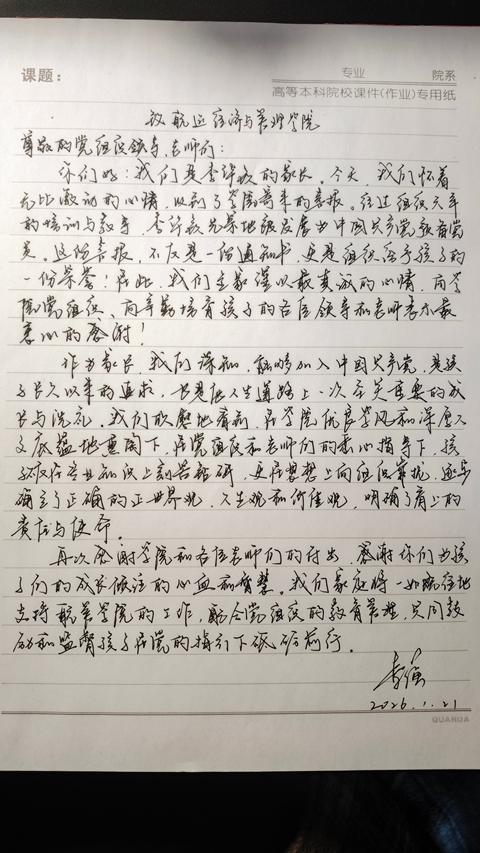 课题：
专业 院系
高等本科院校课件(作业)专用纸
致航运经济与管理学院
尊敬的党组织领导、老师们：
你们好！我们是李许毅的家长，今天，我们怀着
无比激动的心情，收到了学院寄来的喜报。经过组织六年
的培训与教导，李许毅光荣地被发展为中国共产党预备党
员。这份喜报，不仅是一份通知书，更是组织给予孩子的
一份荣誉！在此，我们全家谨以最真诚的心情，向学
院党组织、向辛勤培育孩子的各位领导和老师表示最
衷心的感谢！
作为家长，我们深知，能够加入中国共产党，是孩
子长久以来的追求，也是他人生道路上一次至关重要的成
长与洗礼。我们欣慰地看到，在学院优良学风和深厚人
文底蕴地熏陶下，在党组织和老师们的悉心指导下，孩
子不仅在专业知识上刻苦钻研，更在思想上向组织靠拢，逐步
确立了正确的世界观、人生观和价值观，明确了肩上的
责任与使命。
再次感谢学院和各位老师们的付出，感谢你们为孩
子们的成长倾注的心血和智慧。我们家庭将一如既往地
支持航管学院的工作，配合党组织的教育管理，共同鼓
励和监督孩子在党的指引下砥砺前行。
李强
2026.1.21
QUANDA